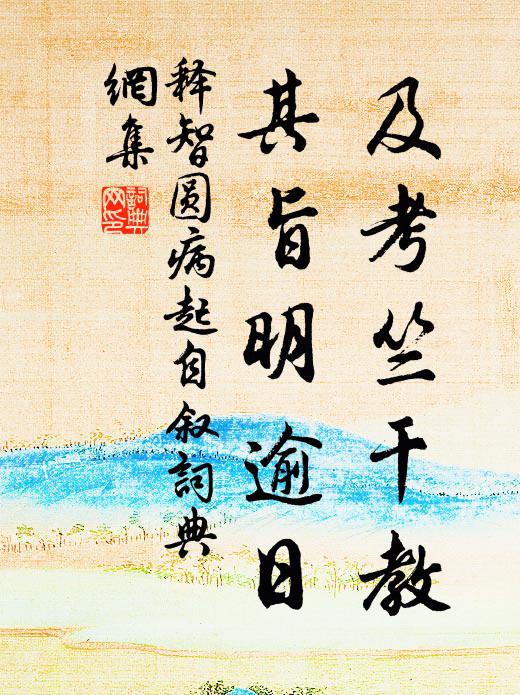 及考竺干教
其旨明逾日
释智圆病起自叙詞典
網集
詞典
网印